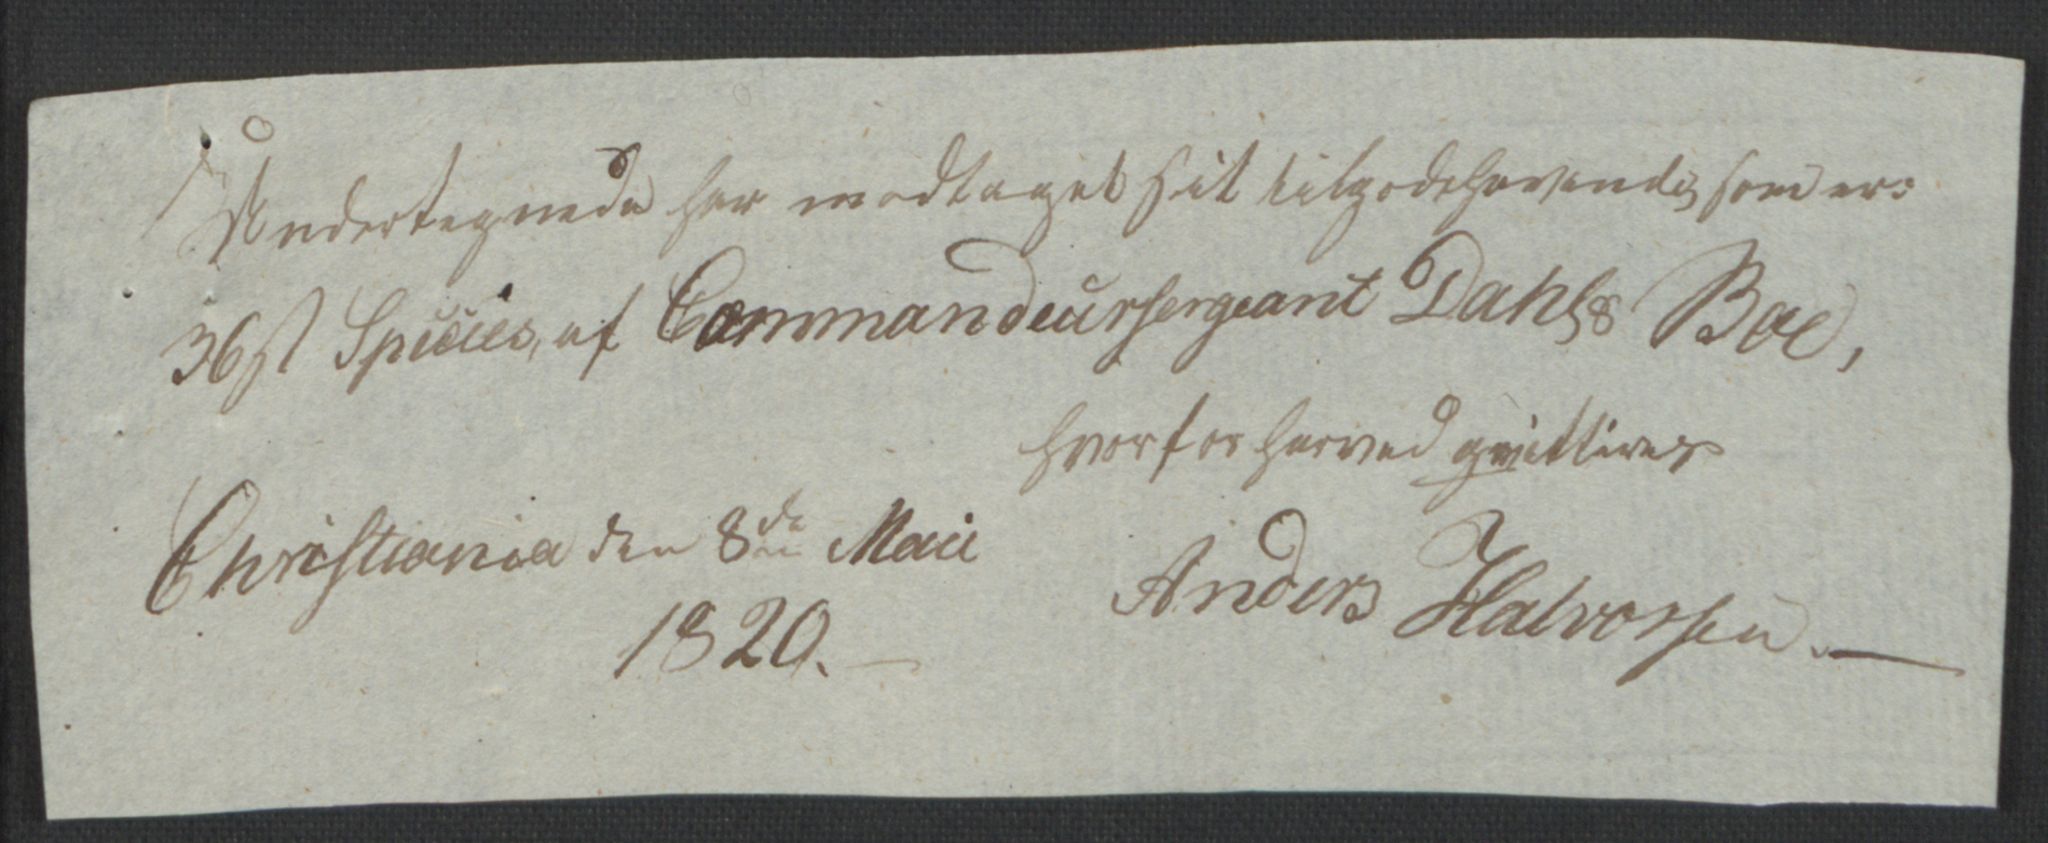 Undertegnede har modtaget sit tilgodehavende, som er:
36 ß Species, af Commandeursergeant Dahls Boe,
hvorfor herved qvitteres
Christiania den 8de Maii
1820.
Anders Halvorsen.